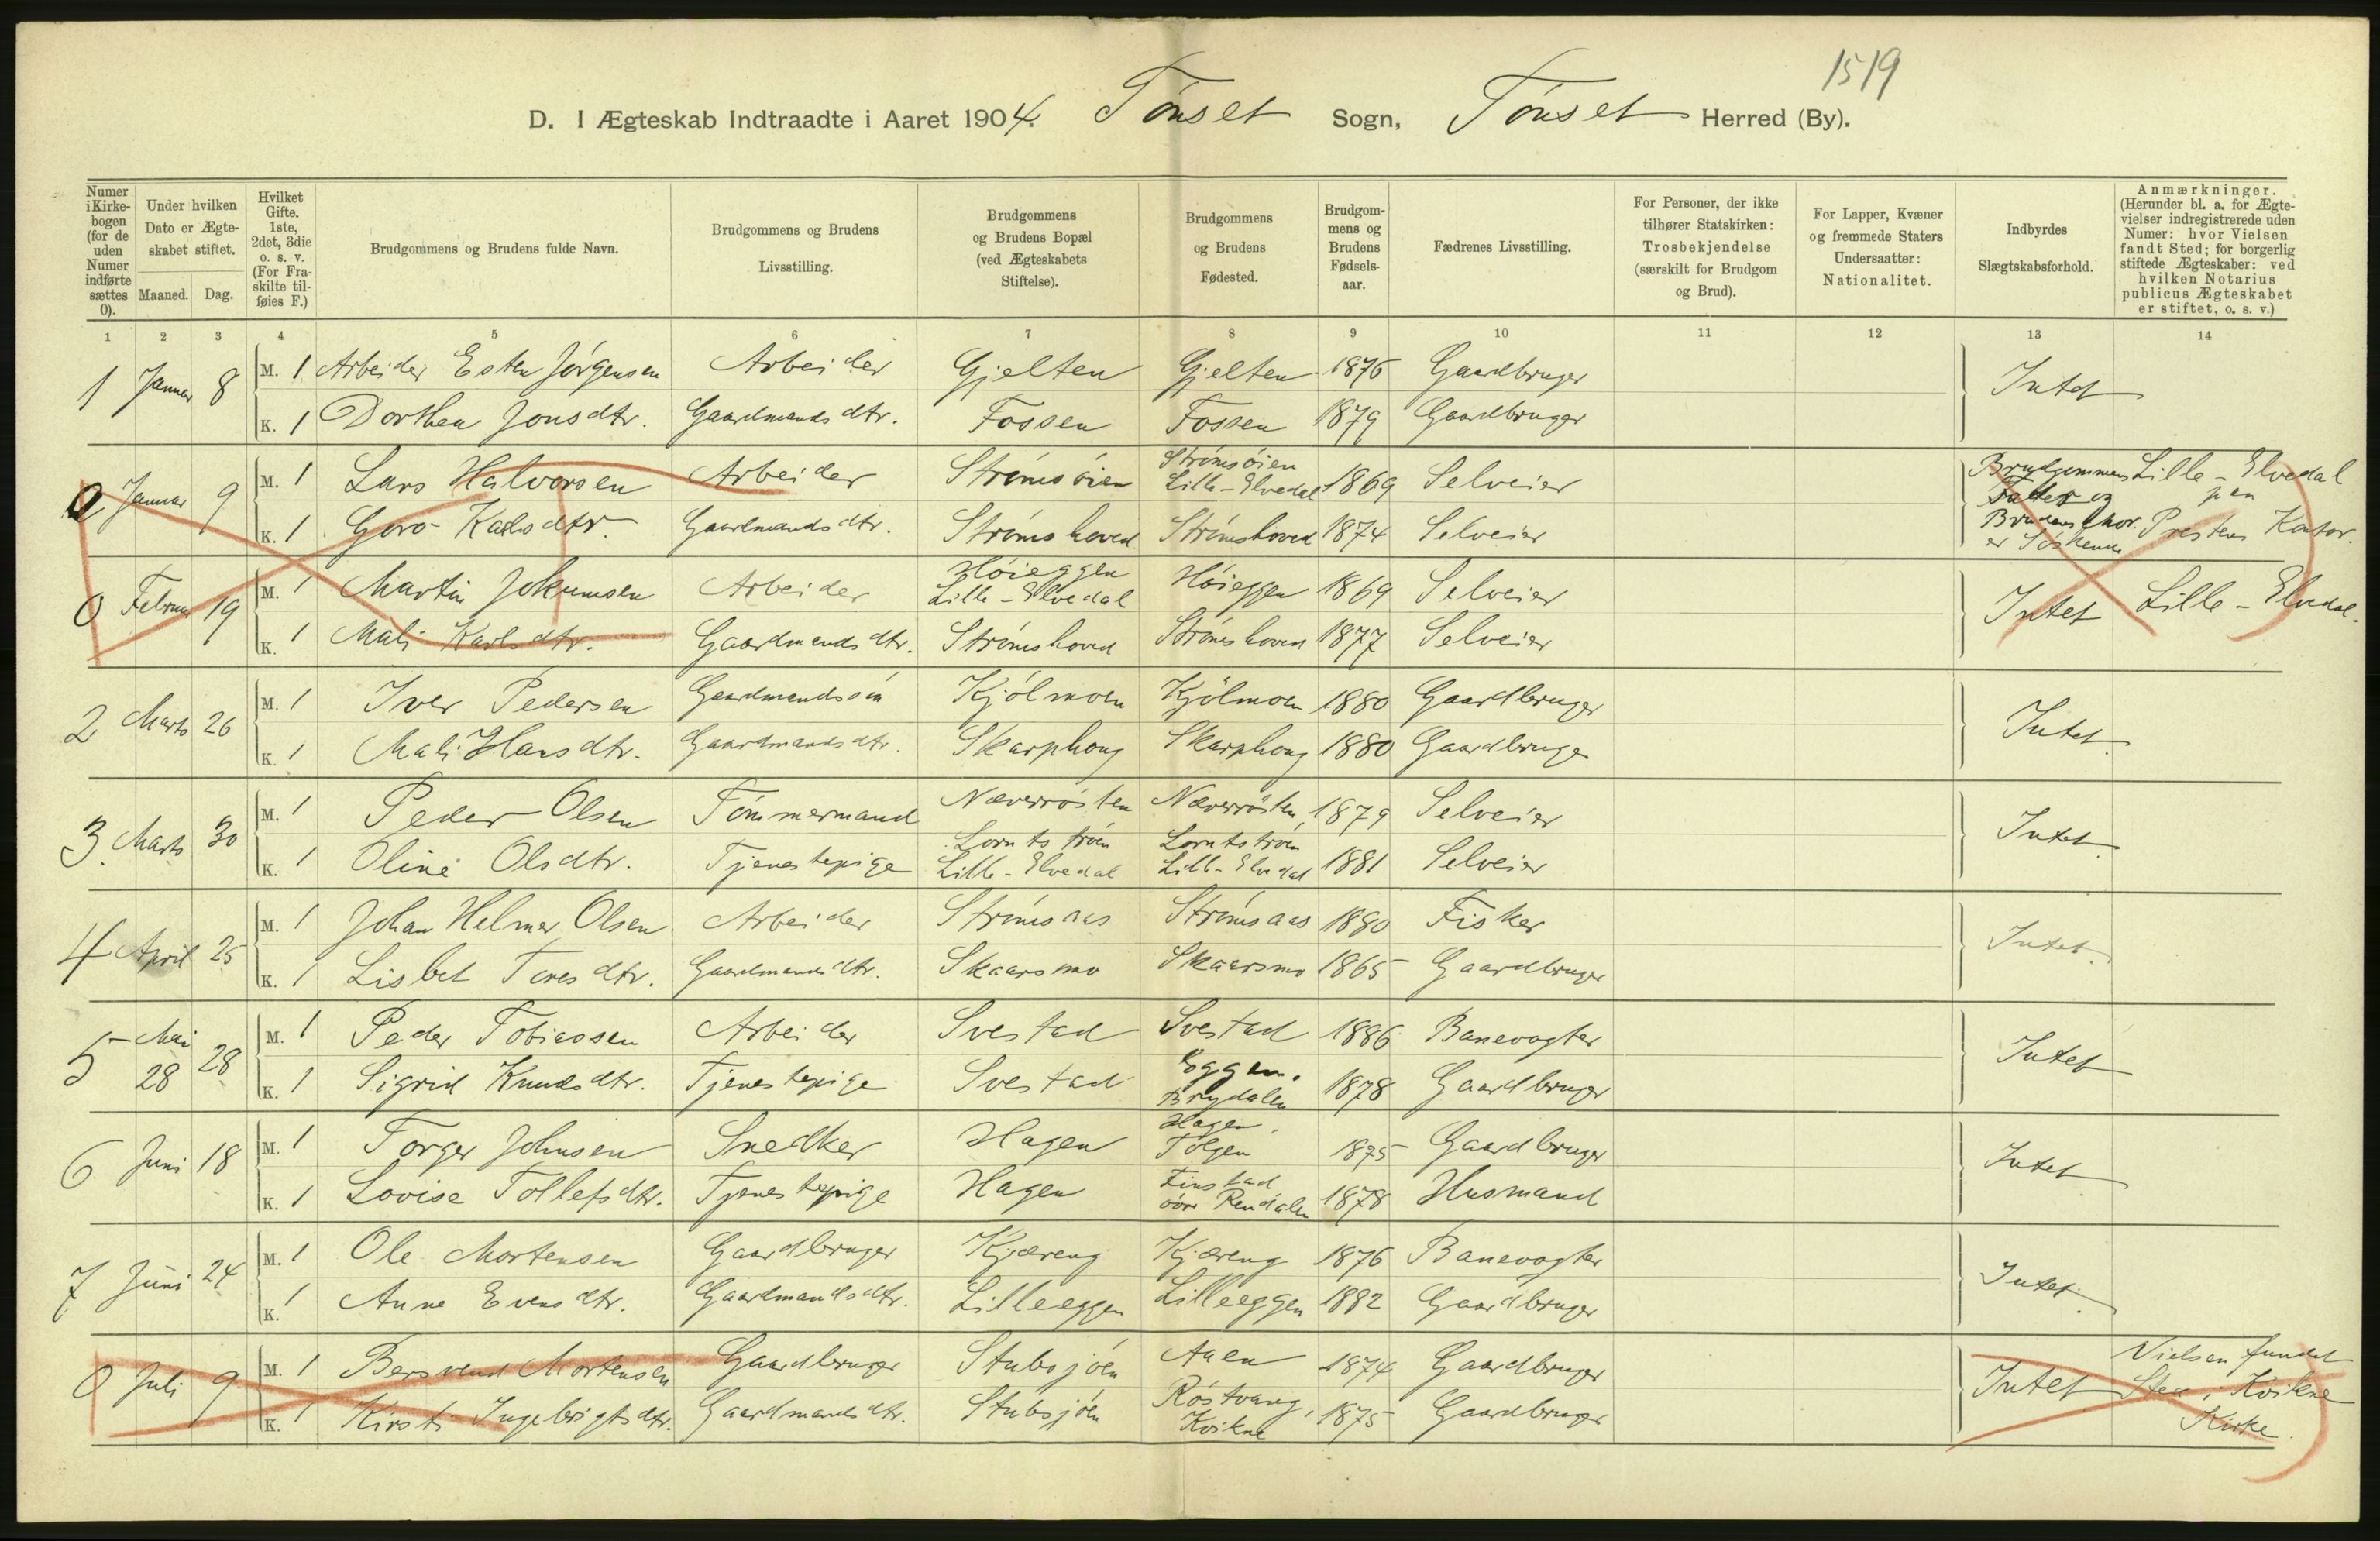 1519
D. I Ægteskab Indtraadte i Aaret 1904. Tønset Sogn, Tønset Herred (By).
Numer i Kirke-bogen (for de uden Numer indførte sættes 0).
Under hvilken Dato er Ægte-skabet stiftet.
Maaned. Dag.
Hvilket Gifte. 1ste, 2det, 3die o. s. v. (For Fra-skilte til-føies F.)
Brudgommens og Brudens fulde Navn.
Brudgommens og Brudens Livsstilling.
Brudgommens og Brudens Bopæl (ved Ægteskabets Stiftelse).
Brudgommens og Brudens Fødested.
Brudgom-mens og Brudens Fødsels-aar.
Fædrenes Livsstilling.
For Personer, der ikke tilhører Statskirken: Trosbekjendelse (særskilt for Brudgom og Brud).
For Lapper, Kvæner og fremmede Staters Undersaatter: Nationalitet.
Indbyrdes Slægtskabsforhold.
Anmærkninger. (Herunder bl. a. for Ægte-vielser indregistrerede uden Numer: hvor Vielsen fandt Sted; for borgerlig stiftede Ægteskaber: ved hvilken Notarius publicus Ægteskabet er stiftet, o. s. v.)
1 2 3 4 5 6 7 8 9 10 11 12 13 14
1 Januar 8 M. 1 Arbeider Esten Jørgensen Arbeider Gjelten Gjelten 1876 Gaardbruger Intet
K. 1 Dorthea Jonsdtr. Gaardmandsdtr. Fossen Fossen 1879 Gaardbruger
0 Januar 9 M. 1 Lars Halvorsen Arbeider Strømsøien Strømsøien Lille-Elvedal 1869 Selveier Brudgommens Fader og Brudens Mor. er Søskende Lille-Elvedal paa Prestens Kontor.
K. 1 Goro Karlsdtr. Gaardmandsdtr. Strømshoved Strømshoved 1874 Selveier
0 Februar 19 M. 1 Martin Jokumsen Arbeider Høieggen Lille-Elvedal Høieggen 1869 Selveier Intet Lille-Elvedal.
K. 1 Mali Karlsdtr. Gaardmandsdtr. Strømshoved Strømshoved 1877 Selveier
2 Marts 26 M. 1 Iver Pedersen Gaardmandssøn Kjølmoen Kjølmoen 1880 Gaardbruger Intet.
K. 1 Mali Hansdtr. Gaardmandsdtr. Skarphoug Skarphoug 1880 Gaardbruger
3. Marts 30 M. 1 Peder Olsen Tømmermand Næverrøsten Næverrøsten, 1879 Selveier Intet.
K. 1 Oline Olsdtr. Tjenestepige Lorntstrøen Lille-Elvedal Lorntstrøen Lille-Elvedal 1881 Selveier
4 April 25 M. 1 Johan Helmer Olsen Arbeider Strømsaas Strømsaas 1880 Fisker Intet.
K. 1 Lisbet Toresdtr. Gaardmandsdtr. Skaarsmo Skaarsmo 1865 Gaardbruger
5 Mai 28 28 M. 1 Peder Tobiassen Arbeider Svestad Svestad 1886 Banevogter Intet
K. 1 Sigrid Knudsdtr. Tjenestepige Svestad Eggen. Brydalen 1878 Gaardbruger
6 Juni 18 M. 1 Torger Johnsen Snedker Hagen Hagen, Tolgen 1875 Gaardbruger Intet
K. 1 Lovise Tollefsdtr. Tjenestepige Hagen Finstad øvre Rendalen 1878 Husmand
7 Juni 24 M. 1 Ole Mortensen Gaardbruger Kjæreng Kjæreng 1876 Banevogter Intet.
K. 1 Anne Evensdtr. Gaardmandsdtr. Lilleeggen Lilleeggen 1882 Gaardbruger
0 Juli 9 M. 1 Bersvend Mortensen Gaardbruger Stubsjøen Aaen 1874 Gaardbruger Intet Vielsen fundet Sted i Kvikne Kirke.
K. 1 Kirsti Ingebrigtsdtr. Gaardmandsdtr. Stubsjøen Røstvang, Kvikne 1875 Gaardbruger